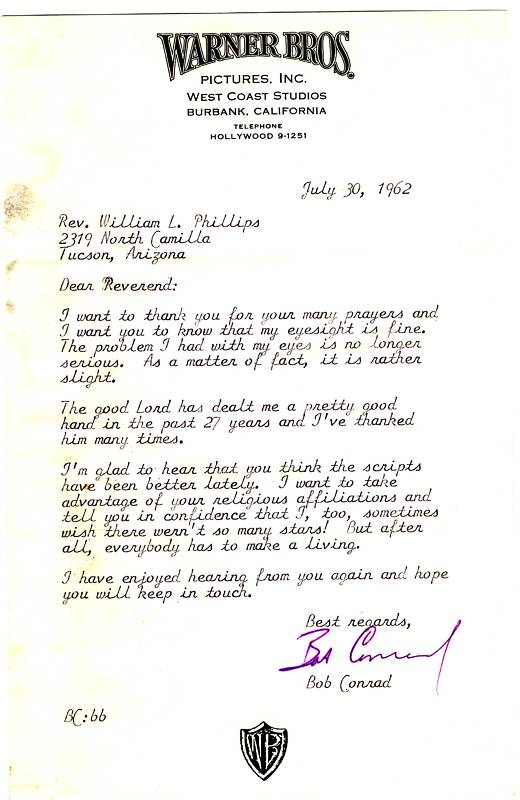 WARNER BROS.
PICTURES, INC.
WEST COAST STUDIOS
BURBANK, CALIFORNIA
TELEPHONE
HOLLYWOOD 9-1251
July 30, 1962
Rev. William L. Phillips
2319 North Camilla
Tucson, Arizona
Dear Reverend:
I want to thank you for your many prayers and
I want you to know that my eyesight is fine.
The problem I had with my eyes is no longer
serious. As a matter of fact, it is rather
slight.
The good Lord has dealt me a pretty good
hand in the past 27 years and I've thanked
him many times.
I'm glad to hear that you think the scripts
have been better lately. I want to take
advantage of your religious affiliations and
tell you in confidence that I, too, sometimes
wish there wern't so many stars! But after
all, everybody has to make a living.
I have enjoyed hearing from you again and hope
you will keep in touch.
Best regards,
Bob Conrad
Bob Conrad
BC:bb
WB